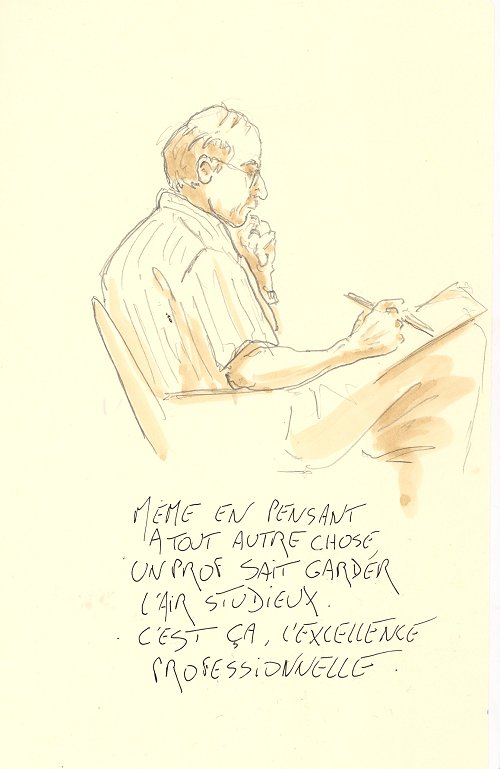 MÊME EN PENSANT
A TOUT AUTRE CHOSE,
UN PROF SAIT GARDER
L'AIR STUDIEUX.
C'EST ÇA, L'EXCELLENCE
PROFESSIONNELLE.